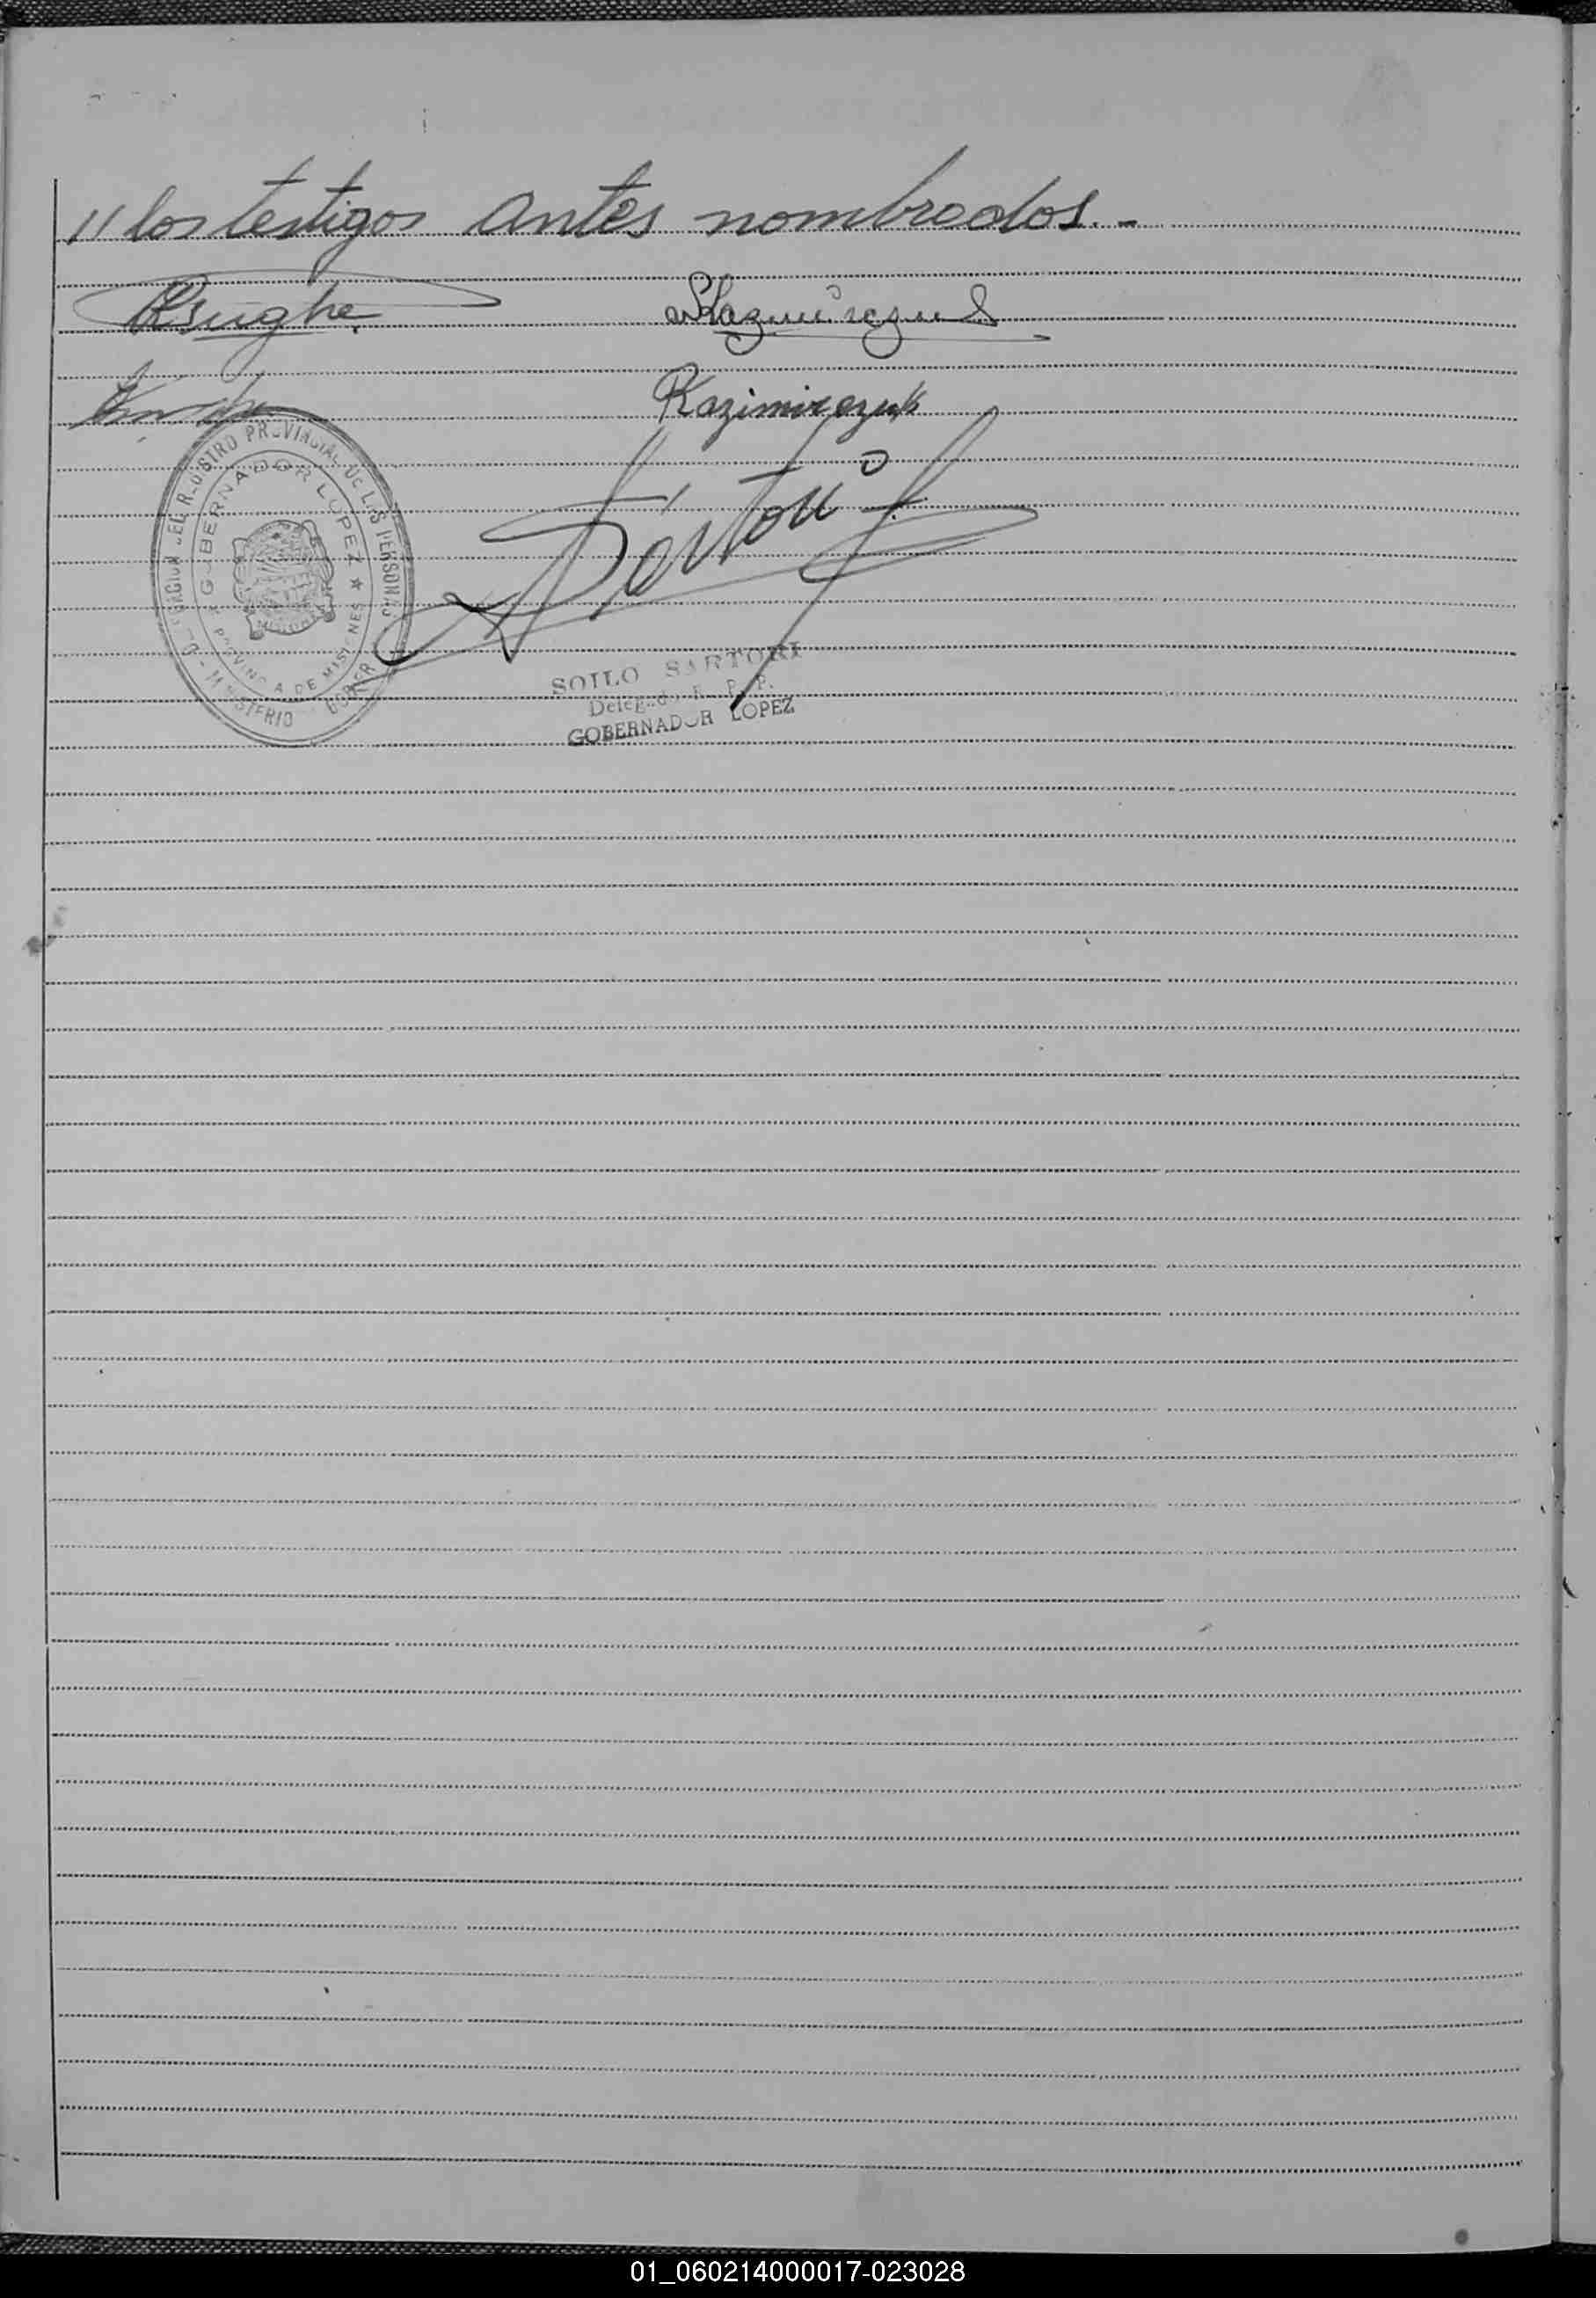 // los testigos antes nombrados.-
Kazimirczuk
Kazimirczuk
Sartori
DELEGACION DEL REGISTRO PROVINCIAL DE LAS PERSONAS
GOBERNADOR LOPEZ
PROVINCIA DE MISIONES
MINISTERIO GOBER
SOILO SARTORI
Delegado R. P. P.
GOBERNADOR LOPEZ
01_060214000017-023028